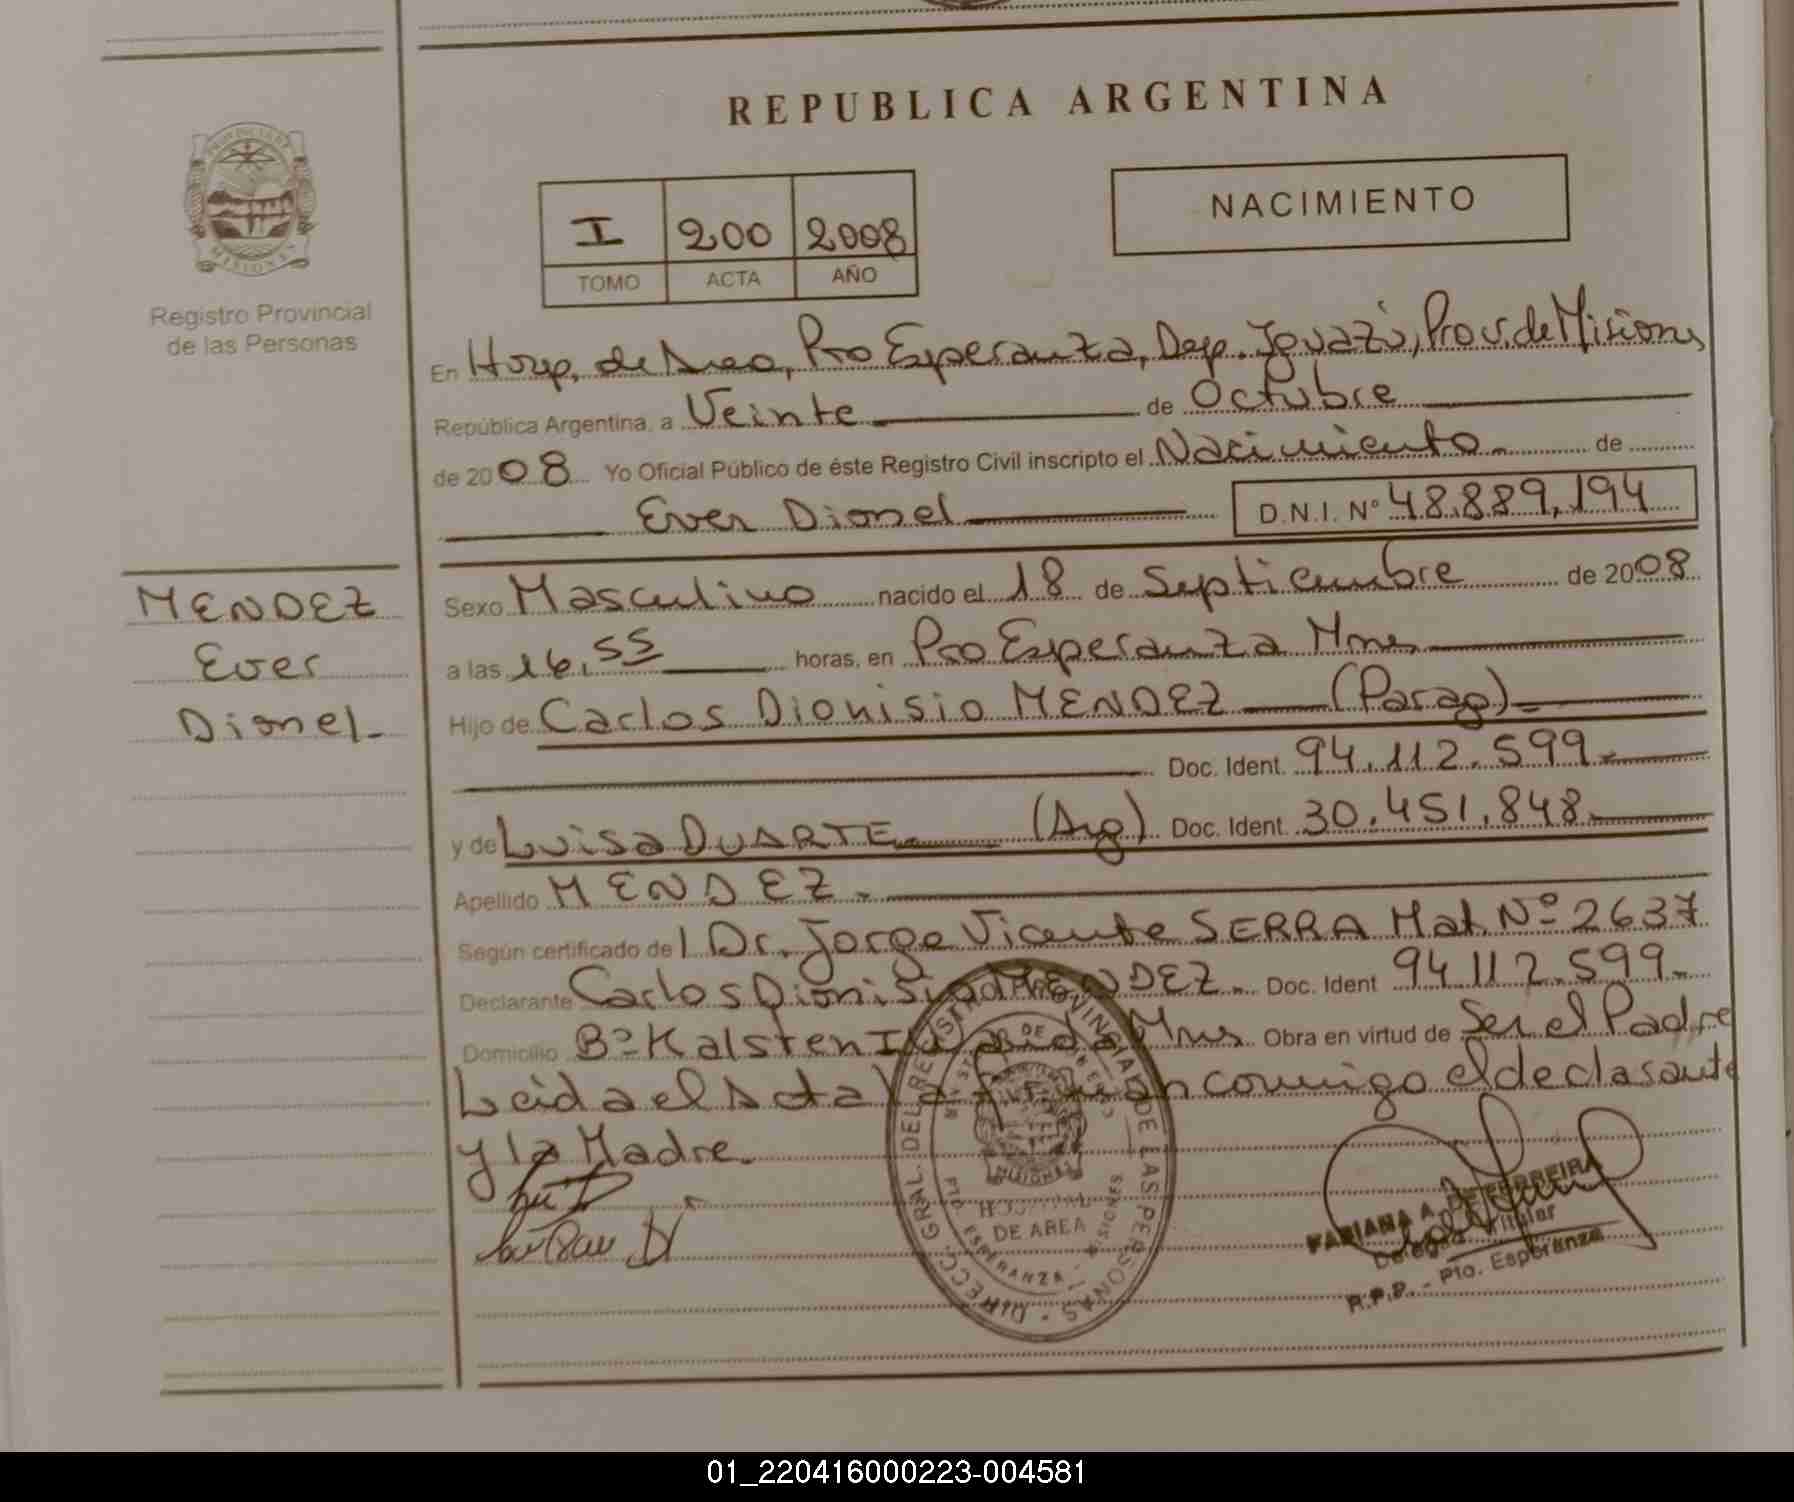 REPUBLICA ARGENTINA
NACIMIENTO
I 200 2008
TOMO ACTA AÑO
PROVINCIA DE
MISIONES
Registro Provincial
de las Personas
En Hosp. de Area, Pto Esperanza, Dep. Iguazú, Prov. de Misiones
República Argentina, a Veinte de Octubre
de 2008 Yo Oficial Público de éste Registro Civil inscripto el Nacimiento de
Ever Dionel D.N.I. Nº 48.889,194
MENDEZ
Ever
Dionel
Sexo Masculino nacido el 18 de Septiembre de 2008
a las 16.55 horas, en Pto Esperanza Mnes
Hijo de Carlos Dionisio MENDEZ (Parag)
Doc. Ident. 94.112.599
y de Luisa DUARTE (Arg) Doc. Ident. 30.451.848
Apellido MENDEZ
Según certificado de Dr. Jorge Vicente SERRA Mat. Nº 2637
Declarante Carlos Dionisio MENDEZ Doc. Ident 94.112.599
Domicilio Bº Kalsten Mns Obra en virtud de Ser el Padre
Leida el Acta la firman conmigo el declarante
y la Madre.
DIRECC. GRAL DEL REGISTRO PROVINCIAL DE LAS PERSONAS
MISIONES
HOSPITAL
DE AREA
PTO ESPERANZA - MISIONES
FABIANA A. DE FERREIRA
Delegada Titular
R.P.P. - Pto. Esperanza
01_220416000223-004581